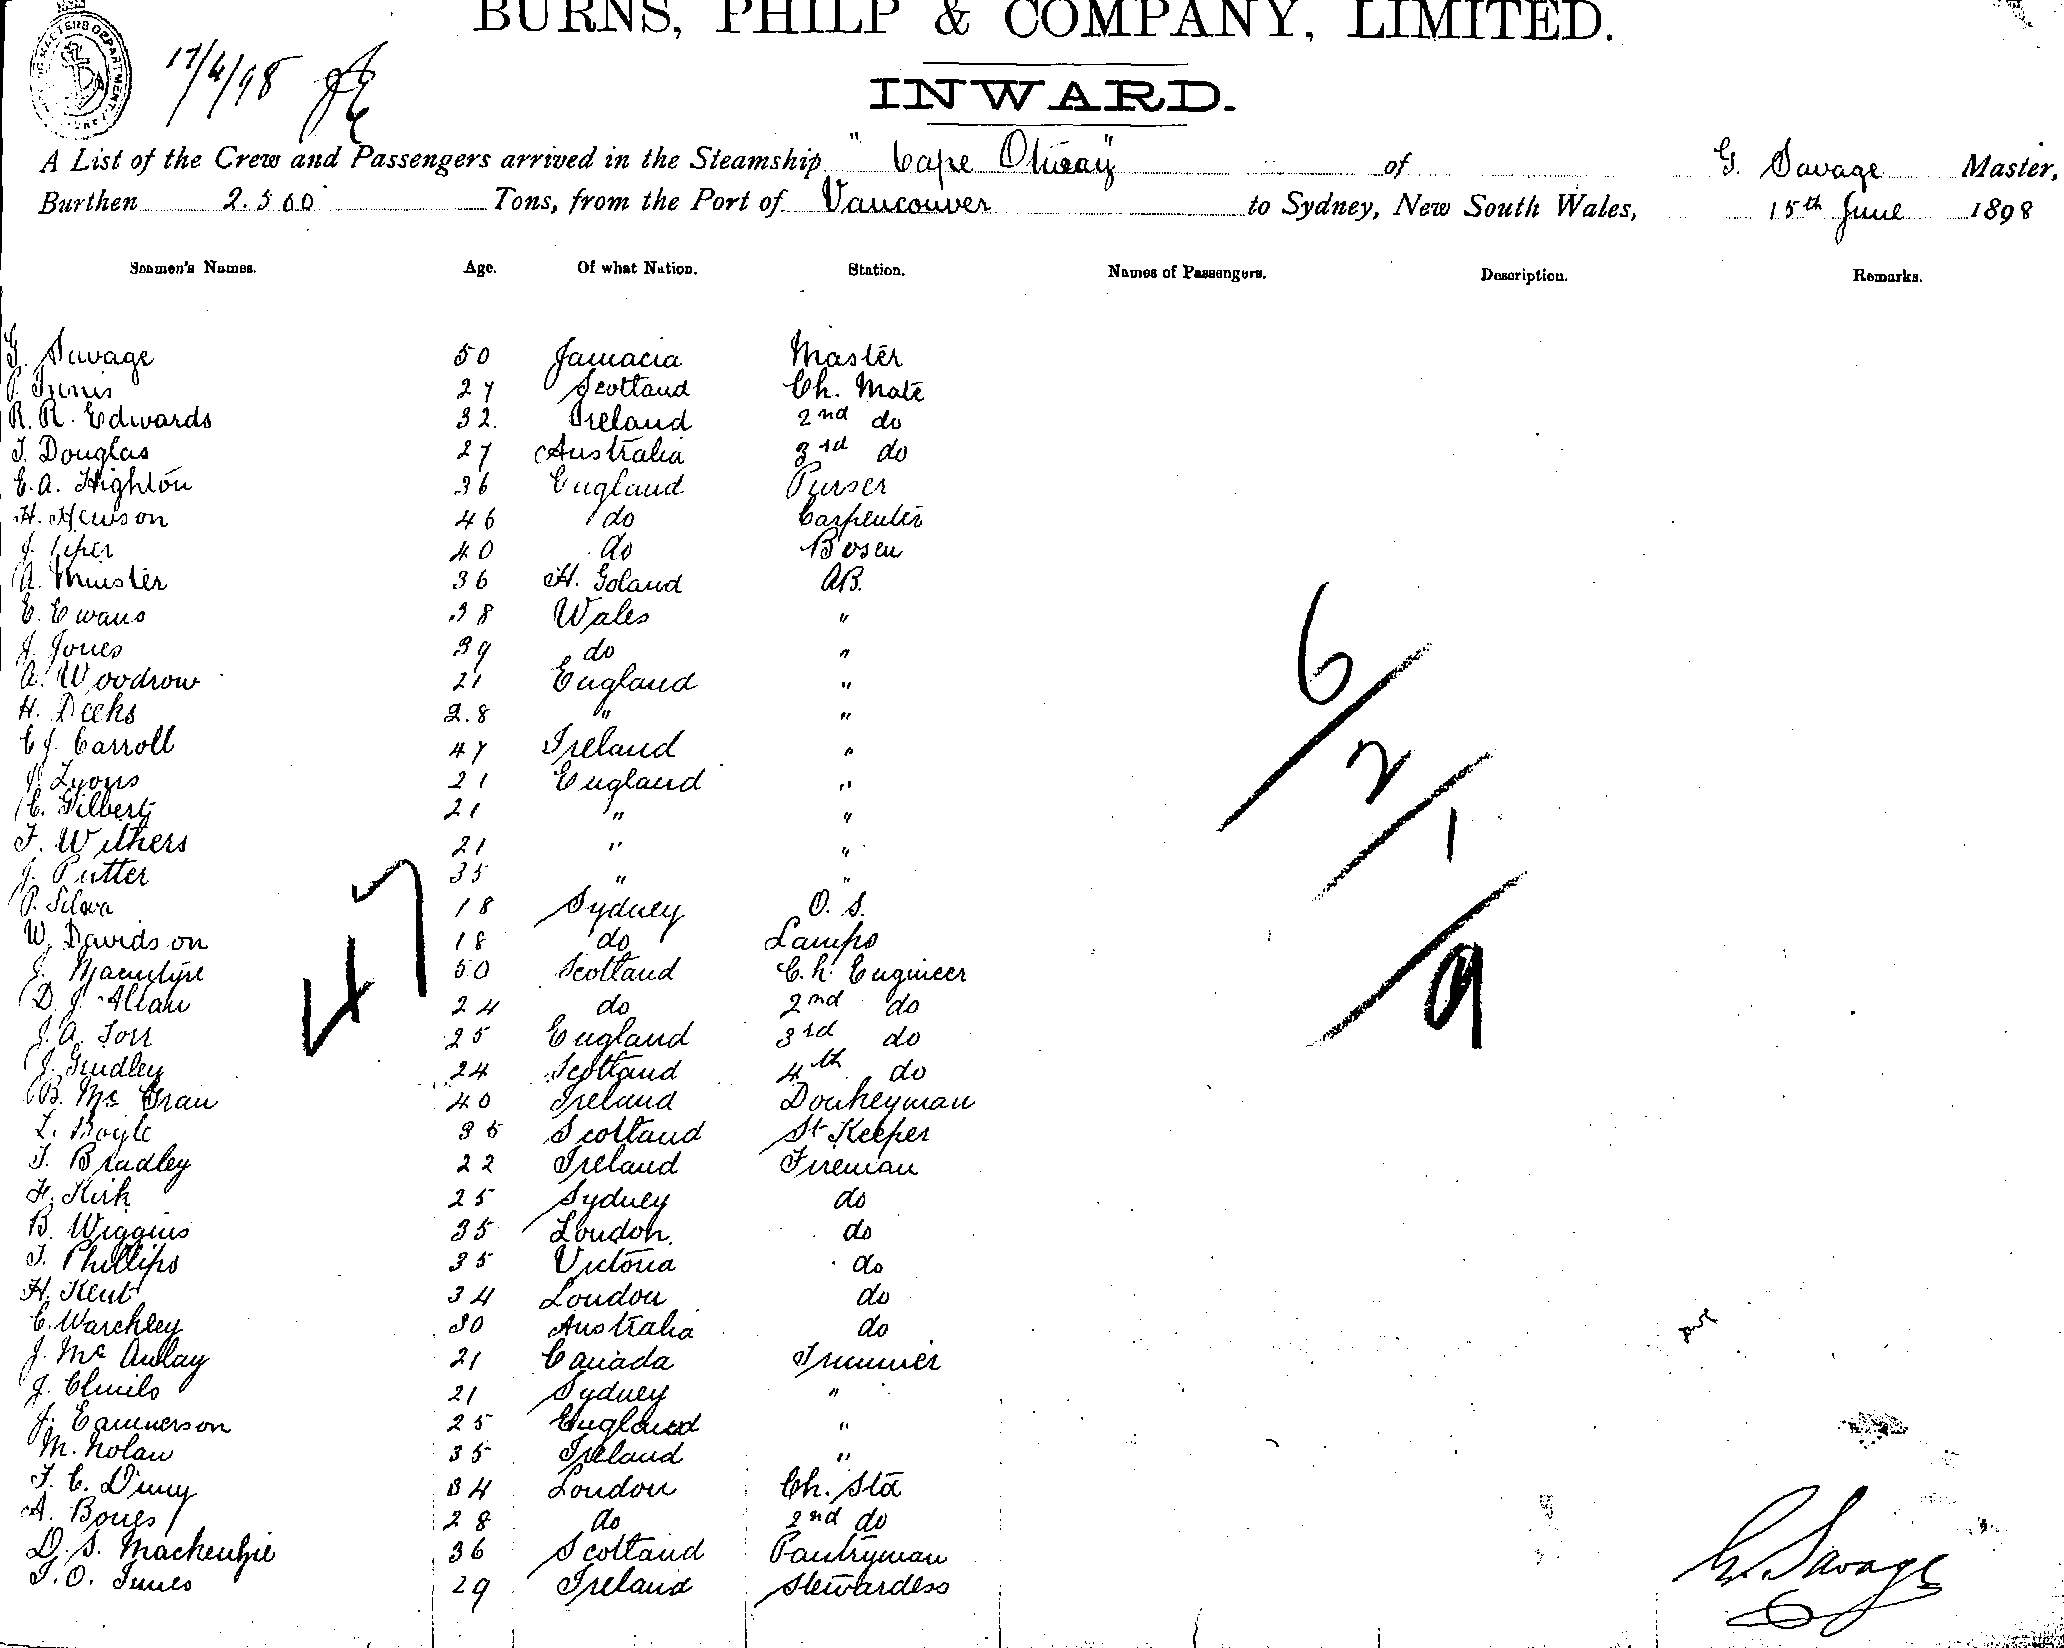 BURNS, PHILP & COMPANY, LIMITED.
INWARD.
A List of the Crew and Passengers arrived in the Steamship "Cape Otway" of G. Savage Master,
Burthen 2.560 Tons, from the Port of Vancouver to Sydney, New South Wales, 15th June 1898
Seamen's Names. Age. Of what Nation. Station. Names of Passengers. Description. Remarks.
G. Savage 50 Jamacia Master
27 Scotland Ch. Mate
R. R. Edwards 32. Ireland 2nd do
T. Douglas 27 Australia 3rd do
E. A. Highton 36 England Purser
H. Hewson 46 do Carpenter
J. Piper 40 do Bosen
A. Minster 36 H. Goland AB.
E. Ewans 38 Wales "
J. Jones 39 do "
A. Woodrow 21 England "
H. Deeks 28 " "
C J. Carroll 47 Ireland "
J. Lyons 21 England "
C. Gilbert 21 " "
F. Withers 21 " "
J. Putter 35 " "
P. Silva 18 Sydney O. S.
W. Davidson 18 do Lamps
J. Macintyre 50 Scotland Ch. Engineer
D. J. Allan 24 do 2nd do
J. A. Torr 25 England 3rd do
J. Gridley 24 Scotland 4th do
B. Mc Gran 40 Ireland Donkeyman
L. Boyle 35 Scotland St Keeper
T. Bradley 22 Ireland Fireman
H. Kirk 25 Sydney do
B. Wiggins 35 London. do
T. Phillips 35 Victoria do
H. Kent 34 London do
C. Warchley 30 Australia do
J. Mc Aulay 21 Canada Trimmer
J. 21 Sydney "
J. Eammerson 25 England "
M. Nolan 35 Ireland "
T. C. 34 London Ch. Std
A. Bones 28 do 2nd do
D. S. Mackenzie 36 Scotland Pantryman
29 Ireland Stewardess
47
6
2
1
9
G. Savage